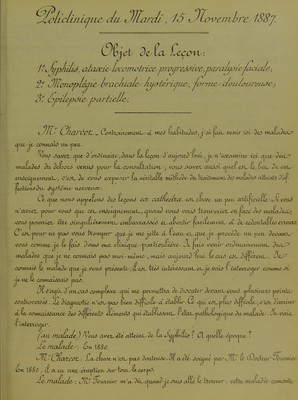 Policlinique du Mardi, 15 Novembre 1887.
Objet de la Leçon:
1º Syphilis, ataxie locomotrice progressive, paralysie faciale;
2º Monoplégie brachiale hystérique, forme douloureuse;
3º Epilepsie partielle;
Mr Charcot. Contrairement à mes habitudes, j'ai fait venir ici des malades
que je connais un peu.
Vous savez que d'ordinaire, dans la leçon d'aujourd'hui, je n'examine ici que des
malades du dehors venus pour la consultation; vous savez aussi quel est le but de cet
enseignement, c'est de vous exposer la véritable méthode du traitement des malades atteints d'af-
fections du système nerveux.
Ce que nous appelons des leçons ex cathedra est chose un peu artificielle. Il vous
n'arrive, pour vous que cet enseignement, quand vous vous trouverez en face des malades,
vous pourriez être singulièrement embarrassés à aborder facilement, et de véritables erreurs.
C'est pour ne pas vous tromper que je me jette à l'eau et que je procède un peu devant
vous comme je le fais dans ma clinique particulière. Je fais venir ordinairement des
malades que je ne connais pas moi-même, mais aujourd'hui le cas est différent. Je
connais le malade que je vous présente, il est très intéressant, et je vais l'interroger comme si
je ne le connaissais pas.
Il s'agit d'un cas complexe qui me permettra de discuter devant vous plusieurs points
controversés. Le diagnostic n'est pas bien difficile à établir. Ce qui est plus difficile, c'est d'arriver
à la connaissance des différents éléments qui établissent l'état pathologique du malade. Je vais
l'interroger.
(au malade) Vous avez été atteint de la Syphilis? A quelle époque?
Le malade: En 1880.
Mr Charcot: La chose n'est pas douteuse. Il a été soigné par Mr le Docteur Fournier.
En 1880, il a eu une éruption sur tout le corps.
Le malade: Mr Fournier m'a dit, quand je suis allé le trouver, votre maladie remonte